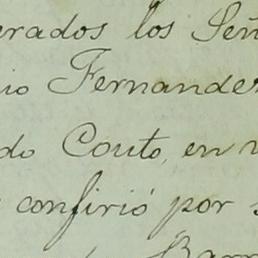 erados los Señ
io Fernande
do Couto, en
confirió por
Barr